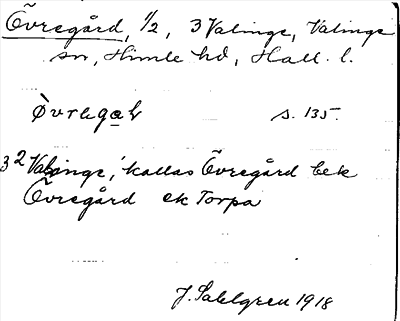 Övregård, 1/2, 3 Valinge, Valinge
sn, Himle hd, Hall. l.
s. 135.
3² Valinge, kallas Övregård bek
Övregård ek Torpa
J. Sahlgren 1918